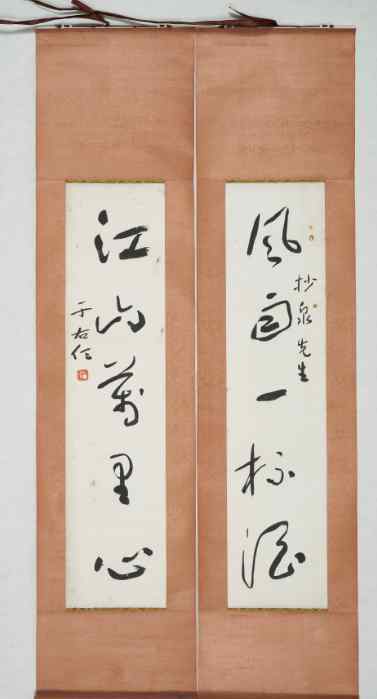 風雨一杯酒
抄泉先生
江山萬里心
于右任